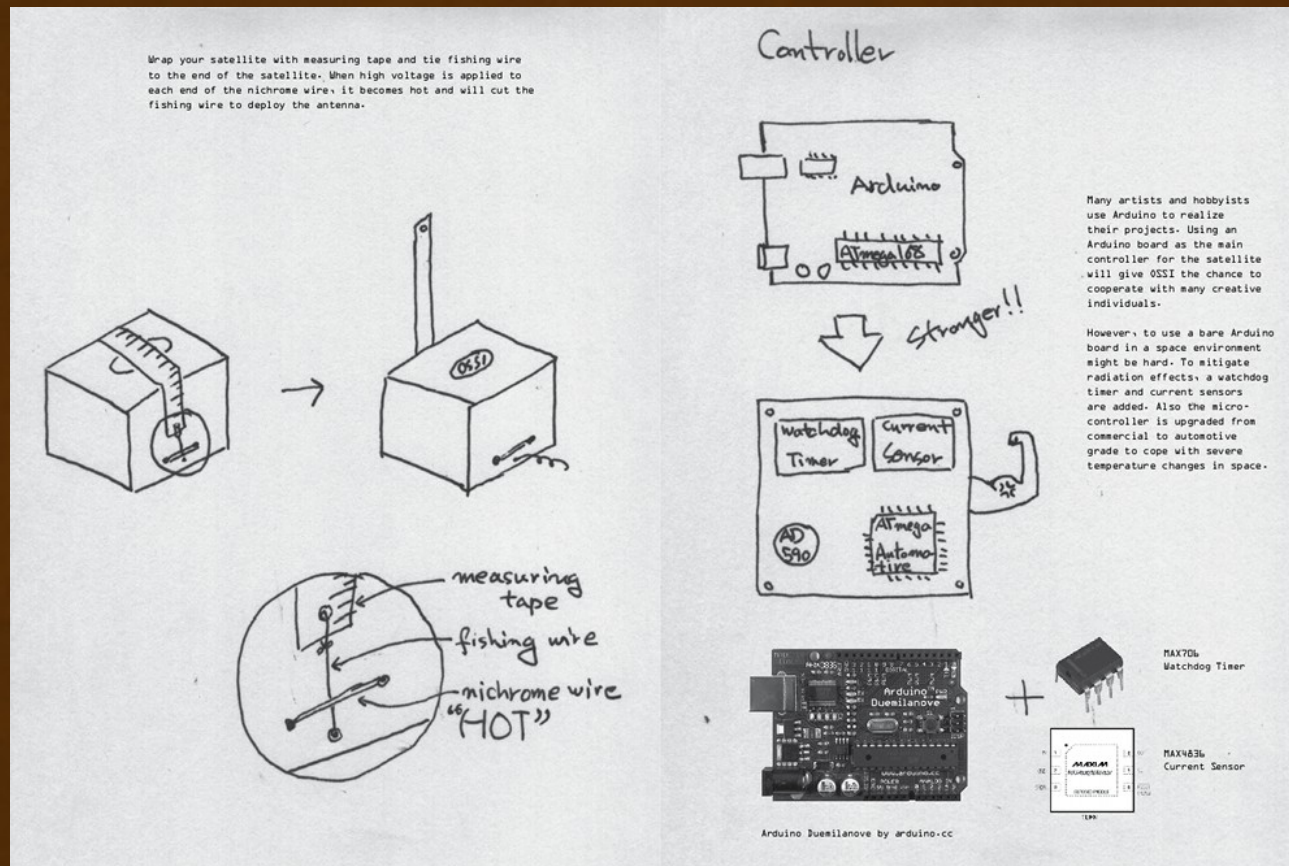 Wrap your satellite with measuring tape and tie fishing wire
to the end of the satellite. When high voltage is applied to
each end of the nichrome wire, it becomes hot and will cut the
fishing wire to deploy the antenna.
OSSI
measuring
tape
fishing wire
nichrome wire
"HOT"
Controller
Arduino
ATmega168
Stronger!!
Watchdog
Timer
Current
Sensor
AD
590
ATmega
Automo-
tive
Many artists and hobbyists
use Arduino to realize
their projects. Using an
Arduino board as the main
controller for the satellite
will give OSSI the chance to
cooperate with many creative
individuals.
However, to use a bare Arduino
board in a space environment
might be hard. To mitigate
radiation effects, a watchdog
timer and current sensors
are added. Also the micro-
controller is upgraded from
commercial to automotive
grade to cope with severe
temperature changes in space.
DIGITAL
Arduino
Duemilanove
www.arduino.cc
POWER
ANALOG IN
+
MAX706
Watchdog Timer
MAXIM
MAX4836
Current Sensor
Arduino Duemilanove by arduino.cc